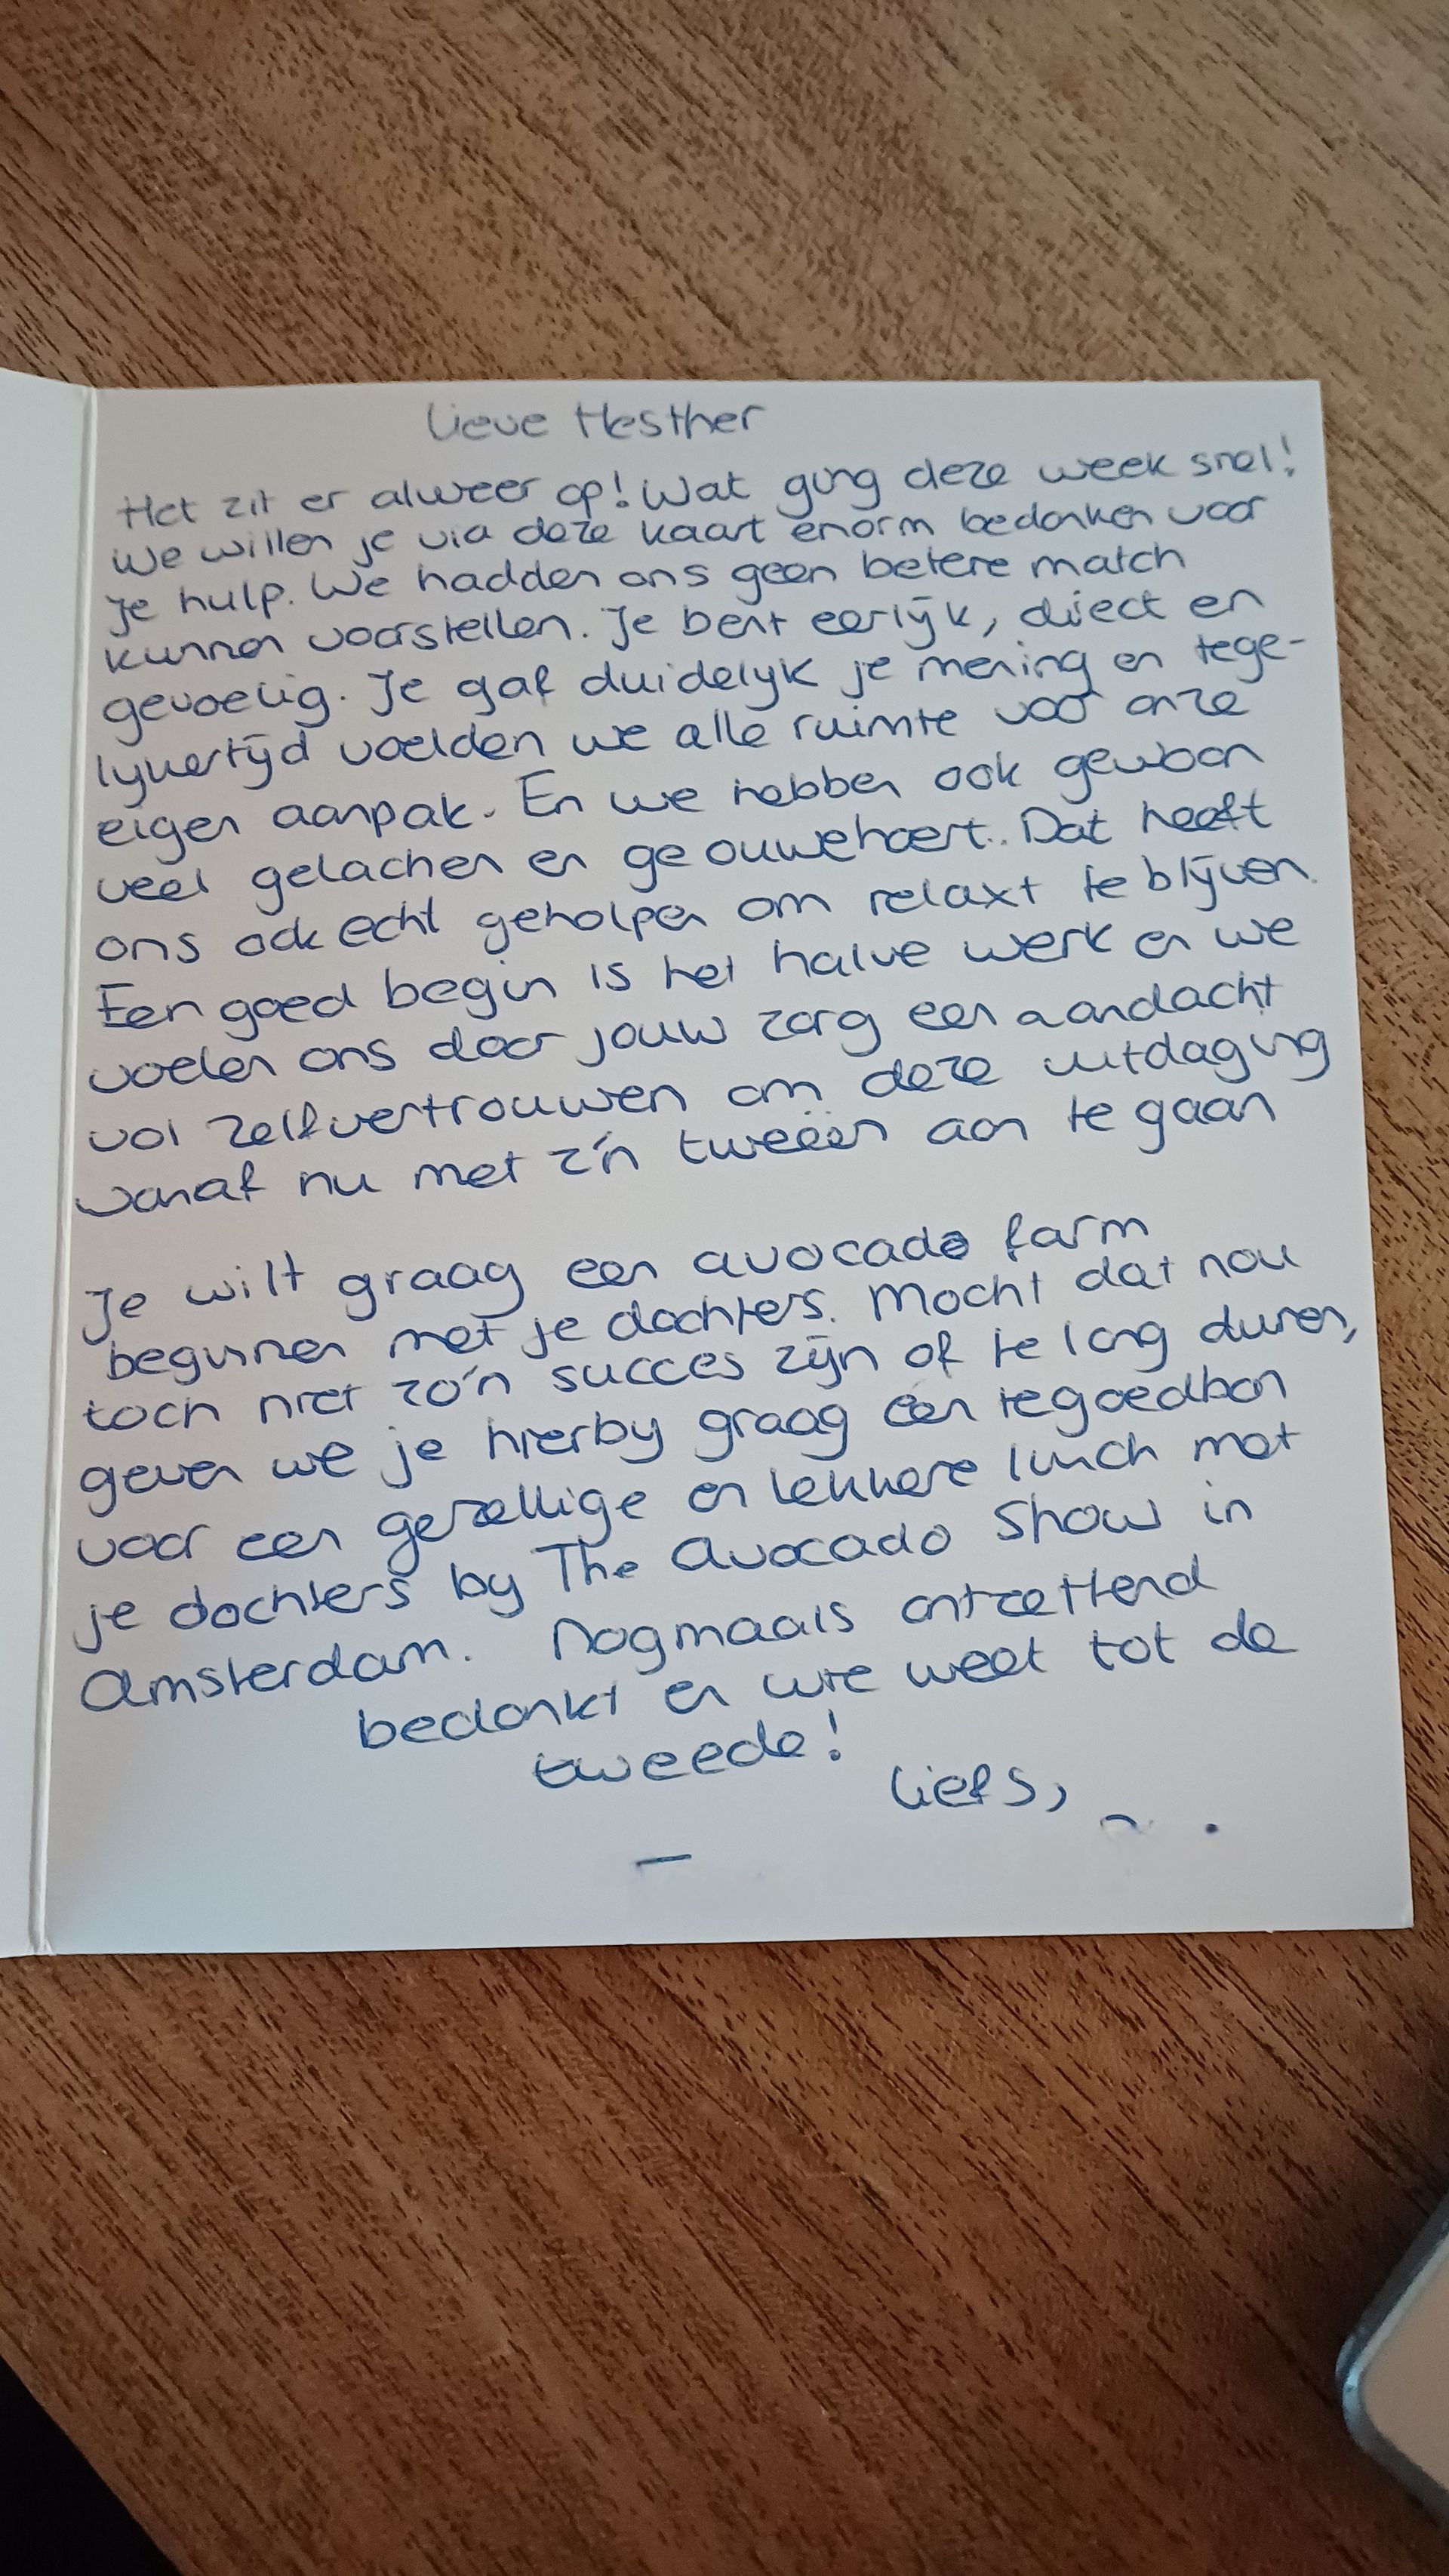 Lieve Hesther
Het zit er alweer op! Wat ging deze week snel!
We willen je via deze kaart enorm bedanken voor
je hulp. We hadden ons geen betere match
kunnen voorstellen. Je bent eerlijk, direct en
gevoelig. Je gaf duidelijk je mening en tege-
lijkertijd voelden we alle ruimte voor onze
eigen aanpak. En we hebben ook gewoon
veel gelachen en geouwehoert. Dat heeft
ons ook echt geholpen om relaxt te blijven.
Een goed begin is het halve werk en we
voelen ons door jouw zorg een aandacht
vol zelfvertrouwen om deze uitdaging
vanaf nu met z'n tweeën aan te gaan
Je wilt graag een avocado farm
beginnen met je dochters. Mocht dat nou
toch niet zo'n succes zijn of te lang duren,
geven we je hierbij graag een tegoedbon
voor een gezellige en lekkere lunch met
je dochters bij The Avocado Show in
Amsterdam. Nogmaals ontzettend
bedankt en wie weet tot de
tweede!
Liefs,